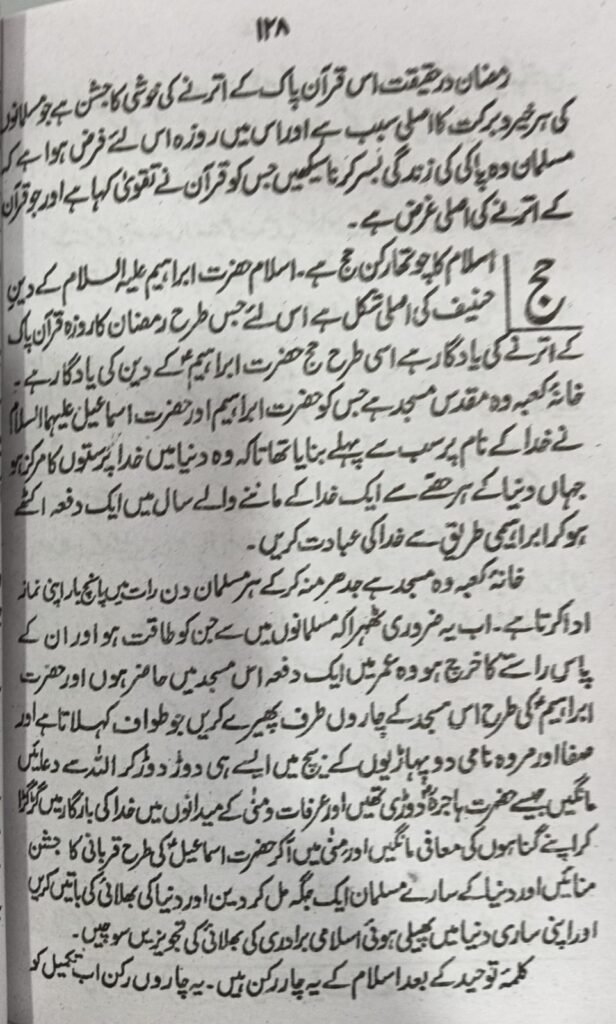 ۱۲۸
رمضان در حقیقت اس قرآن پاک کے اترنے کی خوشی کا جشن ہے جو مسلمانوں
کی ہر خیر و برکت کا اصلی سبب ہے اور اس میں روزہ اس لئے فرض ہوا ہے کہ
مسلمان وہ پاکی کی زندگی بسر کرنا سیکھیں جس کو قرآن نے تقویٰ کہا ہے اور جو قرآن
کے اترنے کی اصلی غرض ہے۔
حج
اسلام کا چوتھا رکن حج ہے۔ اسلام حضرت ابراہیم علیہ السلام کے دینِ
حنیف کی اصلی شکل ہے اس لئے جس طرح رمضان کا روزہ قرآن پاک
کے اترنے کی یادگار ہے اسی طرح حج حضرت ابراہیمؑ کے دین کی یادگار ہے۔
خانۂ کعبہ وہ مقدس مسجد ہے جس کو حضرت ابراہیم اور حضرت اسماعیل علیہما السلام
نے خدا کے نام پر سب سے پہلے بنایا تھا تاکہ وہ دنیا میں خدا پرستوں کا مرکز ہو
جہاں دنیا کے ہر حصّے سے ایک خدا کے ماننے والے سال میں ایک دفعہ اکٹھے
ہو کر ابراہیمی طریق سے خدا کی عبادت کریں۔
خانۂ کعبہ وہ مسجد ہے جدھر منہ کر کے ہر مسلمان دن رات میں پانچ بار اپنی نماز
ادا کرتا ہے۔ اب یہ ضروری ٹھہرا کہ مسلمانوں میں سے جن کو طاقت ہو اور ان کے
پاس راستے کا خرچ ہو وہ عمر میں ایک دفعہ اس مسجد میں حاضر ہوں اور حضرت
ابراہیمؑ کی طرح اس مسجد کے چاروں طرف پھیرے کریں جو طواف کہلاتا ہے اور
صفا اور مروہ نامی دو پہاڑیوں کے بیچ میں ایسے ہی دوڑ دوڑ کر اللہ سے دعائیں
مانگیں جیسے حضرت ہاجرہؑ دوڑی تھیں اور عرفات و منیٰ کے میدانوں میں خدا کی بارگاہ میں گڑگڑا
کر اپنے گناہوں کی معافی مانگیں اور منیٰ میں آ کر حضرت اسماعیلؑ کی طرح قربانی کا جشن
منائیں اور دنیا کے سارے مسلمان ایک جگہ مل کر دین اور دنیا کی بھلائی کی باتیں کریں
اور اپنی ساری دنیا میں پھیلی ہوئی اسلامی برادری کی بھلائی کی تجویزیں سوچیں۔
کلمۂ توحید کے بعد اسلام کے یہ چار رکن ہیں۔ یہ چاروں رکن اب تکمیل کو